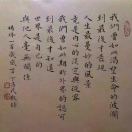 我們曾如此渴望生命的波瀾
到最後才發現
人生最曼妙的風景
竟是內心的淡定與從容
我們曾如此期盼外界的認可
到最後才知道
世界是自己的
與他人毫無關係